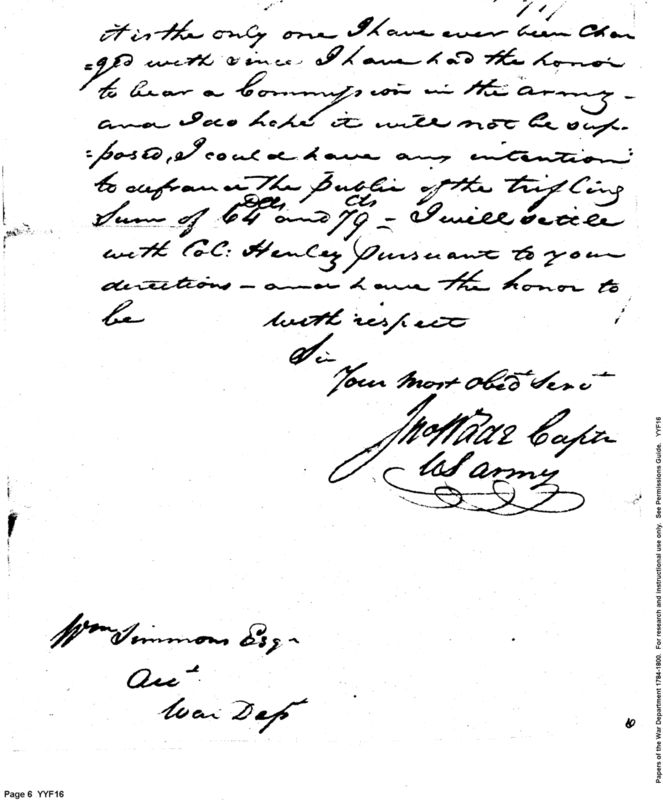 it is the only one I have ever been Char
=ged with since I have had the honor
to bear a Commission in the army -
and I do hope it will not be sup-
=posed, I could have any intention
to defraud the public of the trifling
Sum of 64 Dlls and 79 Cts - I will settle
with Col: Henley pursuant to your
directions - and have the honor to
be with respect
Sir
Your Most Obedt Servt
Jno Wade Captn
US army
Wm Simmons Esqr
Acct
War Dept
6
Page 6 YYF16
Papers of the War Department 1784-1800. For research and instructional use only. See Permissions Guide. YYF16